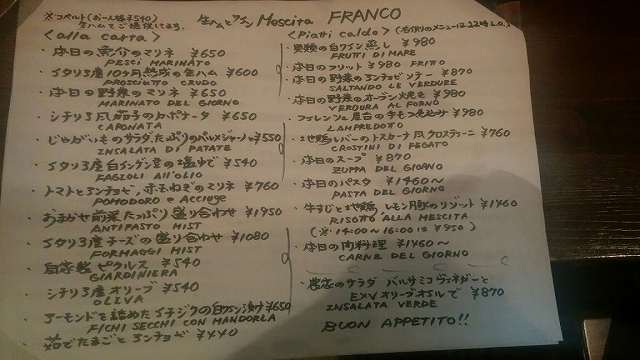 ※コペルト(お一人様¥540)
生ハムをご提供してます。
生ハムとワイン Mescita FRANCO
<alla carta>
・本日の魚介のマリネ ¥650
PESCI MARINATO
・イタリア産10ヶ月熟成の生ハム ¥600
PROSCIUTTO CRUDO
・本日の野菜のマリネ ¥650
MARINATO DEL GIORNO
・シチリア風茄子のカポナータ ¥650
CAPONATA
・じゃがいものサラダ、たっぷりのパルメジャーノと ¥550
INSALATA DI PATATE
・イタリア産白インゲン豆の塩ゆで ¥540
FAGIOLI ALL'OLIO
・トマトとアンチョビ、赤玉ねぎのマリネ ¥760
POMODORO e ACCiuge
・おまかせ前菜たっぷり盛り合わせ ¥1950
ANTIPASTO MIST
・イタリア産チーズの盛り合わせ ¥1080
FORMAGGI MIST
・自家製ピクルス ¥540
GIARDINIERA
・シチリア産オリーブ ¥540
OLIVA
・アーモンドを詰めたイチジクの白ワイン漬け ¥650
FICHI SECCHI CON MANDORLA
・茹でたまごとアンチョビ ¥440
<Piatti caldo>
・貝類の白ワイン蒸し ¥980
FRUTTI DI MARE
・本日のフリット ¥980 FRITO
・本日の野菜のアンチョビソテー ¥870
SALTANDO LE VERDURE
・本日の野菜のオーブン焼き ¥980
VERDURA AL FORNO
・フィレンツェ屋台の牛もつ煮込み ¥980
LAMPREDOTO
・地鶏レバーのトスカーナ風クロスティーニ ¥760
CROSTINI DI FEGATO
・本日のスープ ¥870
ZUPPA DEL GIORNO
・本日のパスタ ¥1460～
PASTA DEL GIORNO
・牛すじと地鶏、レモン風味のリゾット ¥1460
RISOTTO ALLA MESCITA
(※14:00～16:00は¥950)
・本日の肉料理 ¥1460～
CARNE DEL GIORNO
・農家のサラダ バルサミコヴィネガーと
EXVオリーブオイルで ¥870
INSALATA VERDE
BUON APPETITO!!